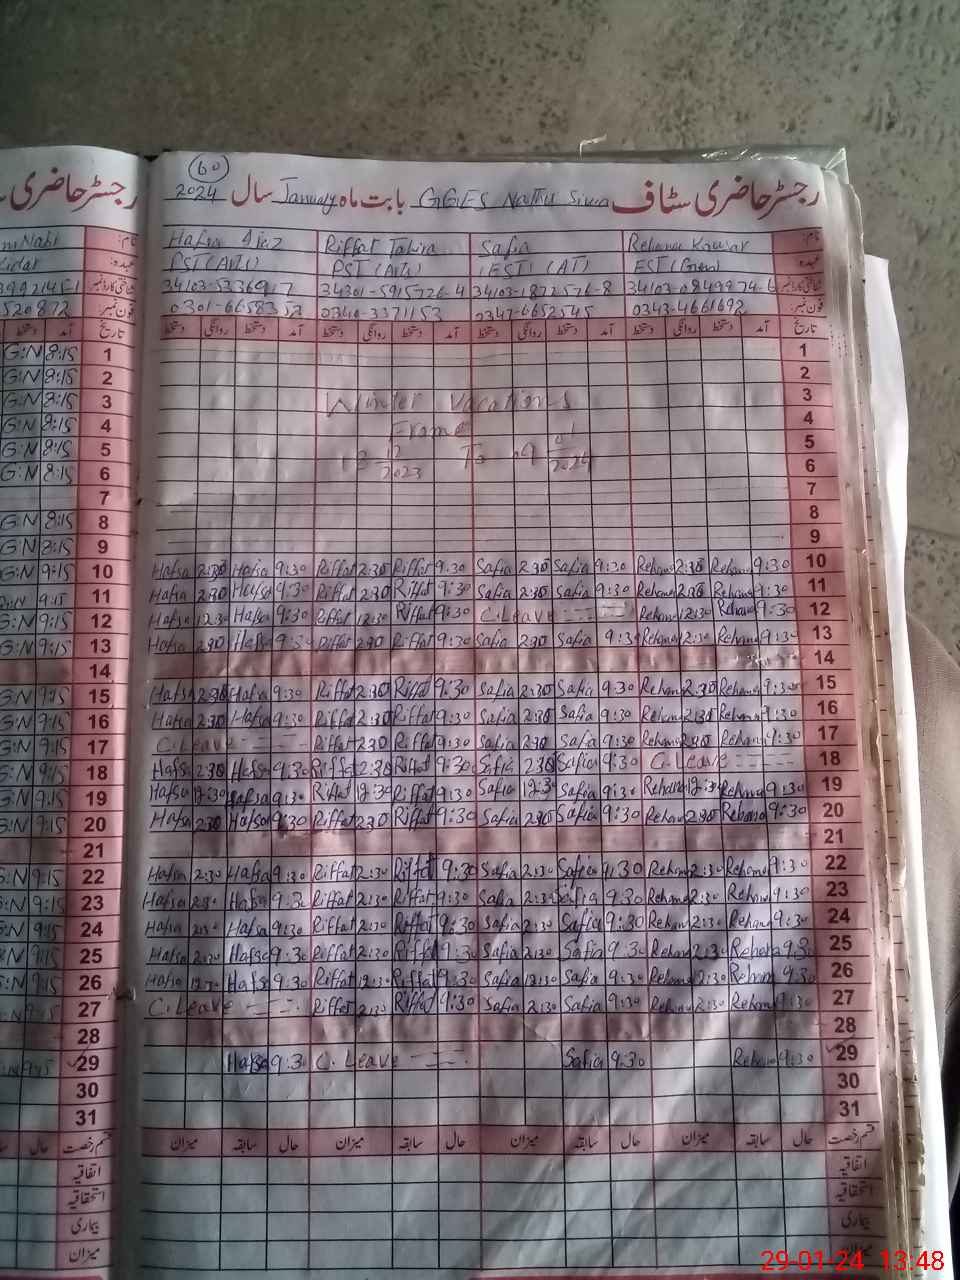 60
رجسٹر حاضری سٹاف GGES Nathu Siwia بابت ماہ January سال 2024
نام: Rehana Kawsar Safia Riffat Tahira Hafsa Ajaz
عہدہ: EST (Gen) (EST) (AT) PST (Arts) PST (Arts)
شناختی کارڈ نمبر 34103-0849974-6 34103-1872576-8 34301-5915726-4
فون نمبر: 0343-4661692 0347-6652545 0340-3371153 0301-6658353
تاریخ آمد دستخط روانگی دستخط آمد دستخط روانگی دستخط آمد دستخط روانگی دستخط آمد دستخط روانگی دستخط
1 G:N 8:15 1
2 G:N 8:15 2
3 G:N 8:15 Winter Vacations 3
4 G:N 8:15 From 4
5 G:N 8:15 5
6 G:N 8:15 12 2023 To 09 01 2024 6
7 7
8 G:N 8:15 8
9 G:N 8:15 9
G:N 9:15 10 Hafsa 2:30 Hafsa 9:30 Riffat 2:30 Riffat 9:30 Safia 2:30 Safia 9:30 Rehana 2:30 Rehana 9:30 10
G:N 9:15 11 Hafsa 2:30 Hafsa 9:30 Riffat 2:30 Riffat 9:30 Safia 2:30 Safia 9:30 Rehana 2:30 Rehana 9:30 11
G:N 9:15 12 Hafsa 12:30 Hafsa 9:30 Riffat 12:30 Riffat 9:30 C.Leave Rehana 12:30 Rehana 9:30 12
G:N 9:15 13 Hafsa 2:30 Hafsa 9:30 Riffat 2:30 Riffat 9:30 Safia 2:30 Safia 9:30 Rehana 2:30 Rehana 9:30 13
14 14
G:N 9:15 15 Hafsa 2:30 Hafsa 9:30 Riffat 2:30 Riffat 9:30 Safia 2:30 Safia 9:30 Rehana 2:30 Rehana 9:30 15
G:N 9:15 16 Hafsa 2:30 Hafsa 9:30 Riffat 2:30 Riffat 9:30 Safia 2:30 Safia 9:30 Rehana 2:30 Rehana 9:30 16
G:N 9:15 17 C.Leave Riffat 2:30 Riffat 9:30 Safia 2:30 Safia 9:30 Rehana 2:30 Rehana 9:30 17
G:N 9:15 18 Hafsa 2:30 Hafsa 9:30 Riffat 2:30 Riffat 9:30 Safia 2:30 Safia 9:30 C.Leave 18
G:N 9:15 19 Hafsa 12:30 Hafsa 9:30 Riffat 12:30 Riffat 9:30 Safia 12:30 Safia 9:30 Rehana 12:30 Rehana 9:30 19
G:N 9:15 20 Hafsa 2:30 Hafsa 9:30 Riffat 2:30 Riffat 9:30 Safia 2:30 Safia 9:30 Rehana 2:30 Rehana 9:30 20
21 21
G:N 9:15 22 Hafsa 2:30 Hafsa 9:30 Riffat 2:30 Riffat 9:30 Safia 2:30 Safia 9:30 Rehana 2:30 Rehana 9:30 22
G:N 9:15 23 Hafsa 2:30 Hafsa 9:30 Riffat 2:30 Riffat 9:30 Safia 2:30 Safia 9:30 Rehana 2:30 Rehana 9:30 23
G:N 9:15 24 Hafsa 2:30 Hafsa 9:30 Riffat 2:30 Riffat 9:30 Safia 2:30 Safia 9:30 Rehana 2:30 Rehana 9:30 24
G:N 9:15 25 Hafsa 2:30 Hafsa 9:30 Riffat 2:30 Riffat 9:30 Safia 2:30 Safia 9:30 Rehana 2:30 Rehana 9:30 25
G:N 9:15 26 Hafsa 12:30 Hafsa 9:30 Riffat 12:30 Riffat 9:30 Safia 12:30 Safia 9:30 Rehana 12:30 Rehana 9:30 26
G:N 9:15 27 C.Leave Riffat 2:30 Riffat 9:30 Safia 2:30 Safia 9:30 Rehana 2:30 Rehana 9:30 27
28 28
9:15 29 Hafsa 9:30 C.Leave Safia 9:30 Rehana 9:30 29
30 30
31 31
قسم رخصت حال سابقہ میزان حال سابقہ میزان حال سابقہ میزان حال سابقہ میزان قسم رخصت
اتفاقیہ اتفاقیہ
استحقاقیہ استحقاقیہ
بیماری بیماری
میزان میزان
29-01-24 13:48